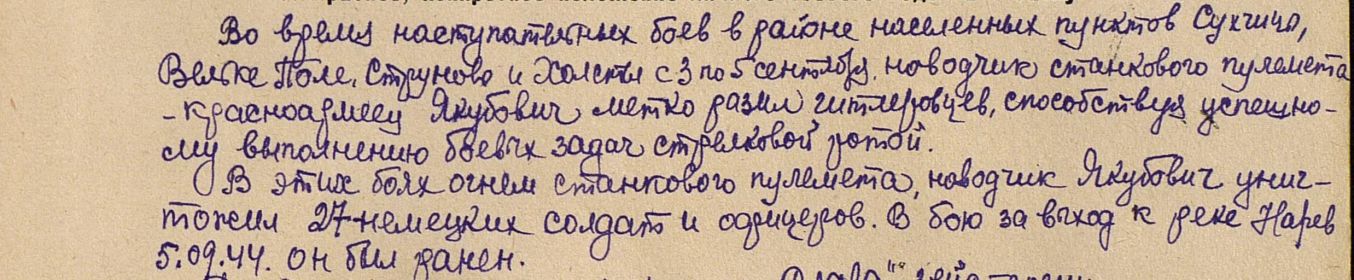 Во время наступательных боев в районе населенных пунктов Сухчицо,
Вельке Поле, Струново и Холсты с 3 по 5 сентября. наводчик станкового пулемета
- красноармеец Якубович метко разил гитлеровцев, способствуя успешно-
му выполнению боевых задач стрелковой ротой.
В этих боях огнем станкового пулемета, наводчик Якубович унич-
тожил 27 немецких солдат и офицеров. В бою за выход к реке Нарев
5.09.44. он был ранен.